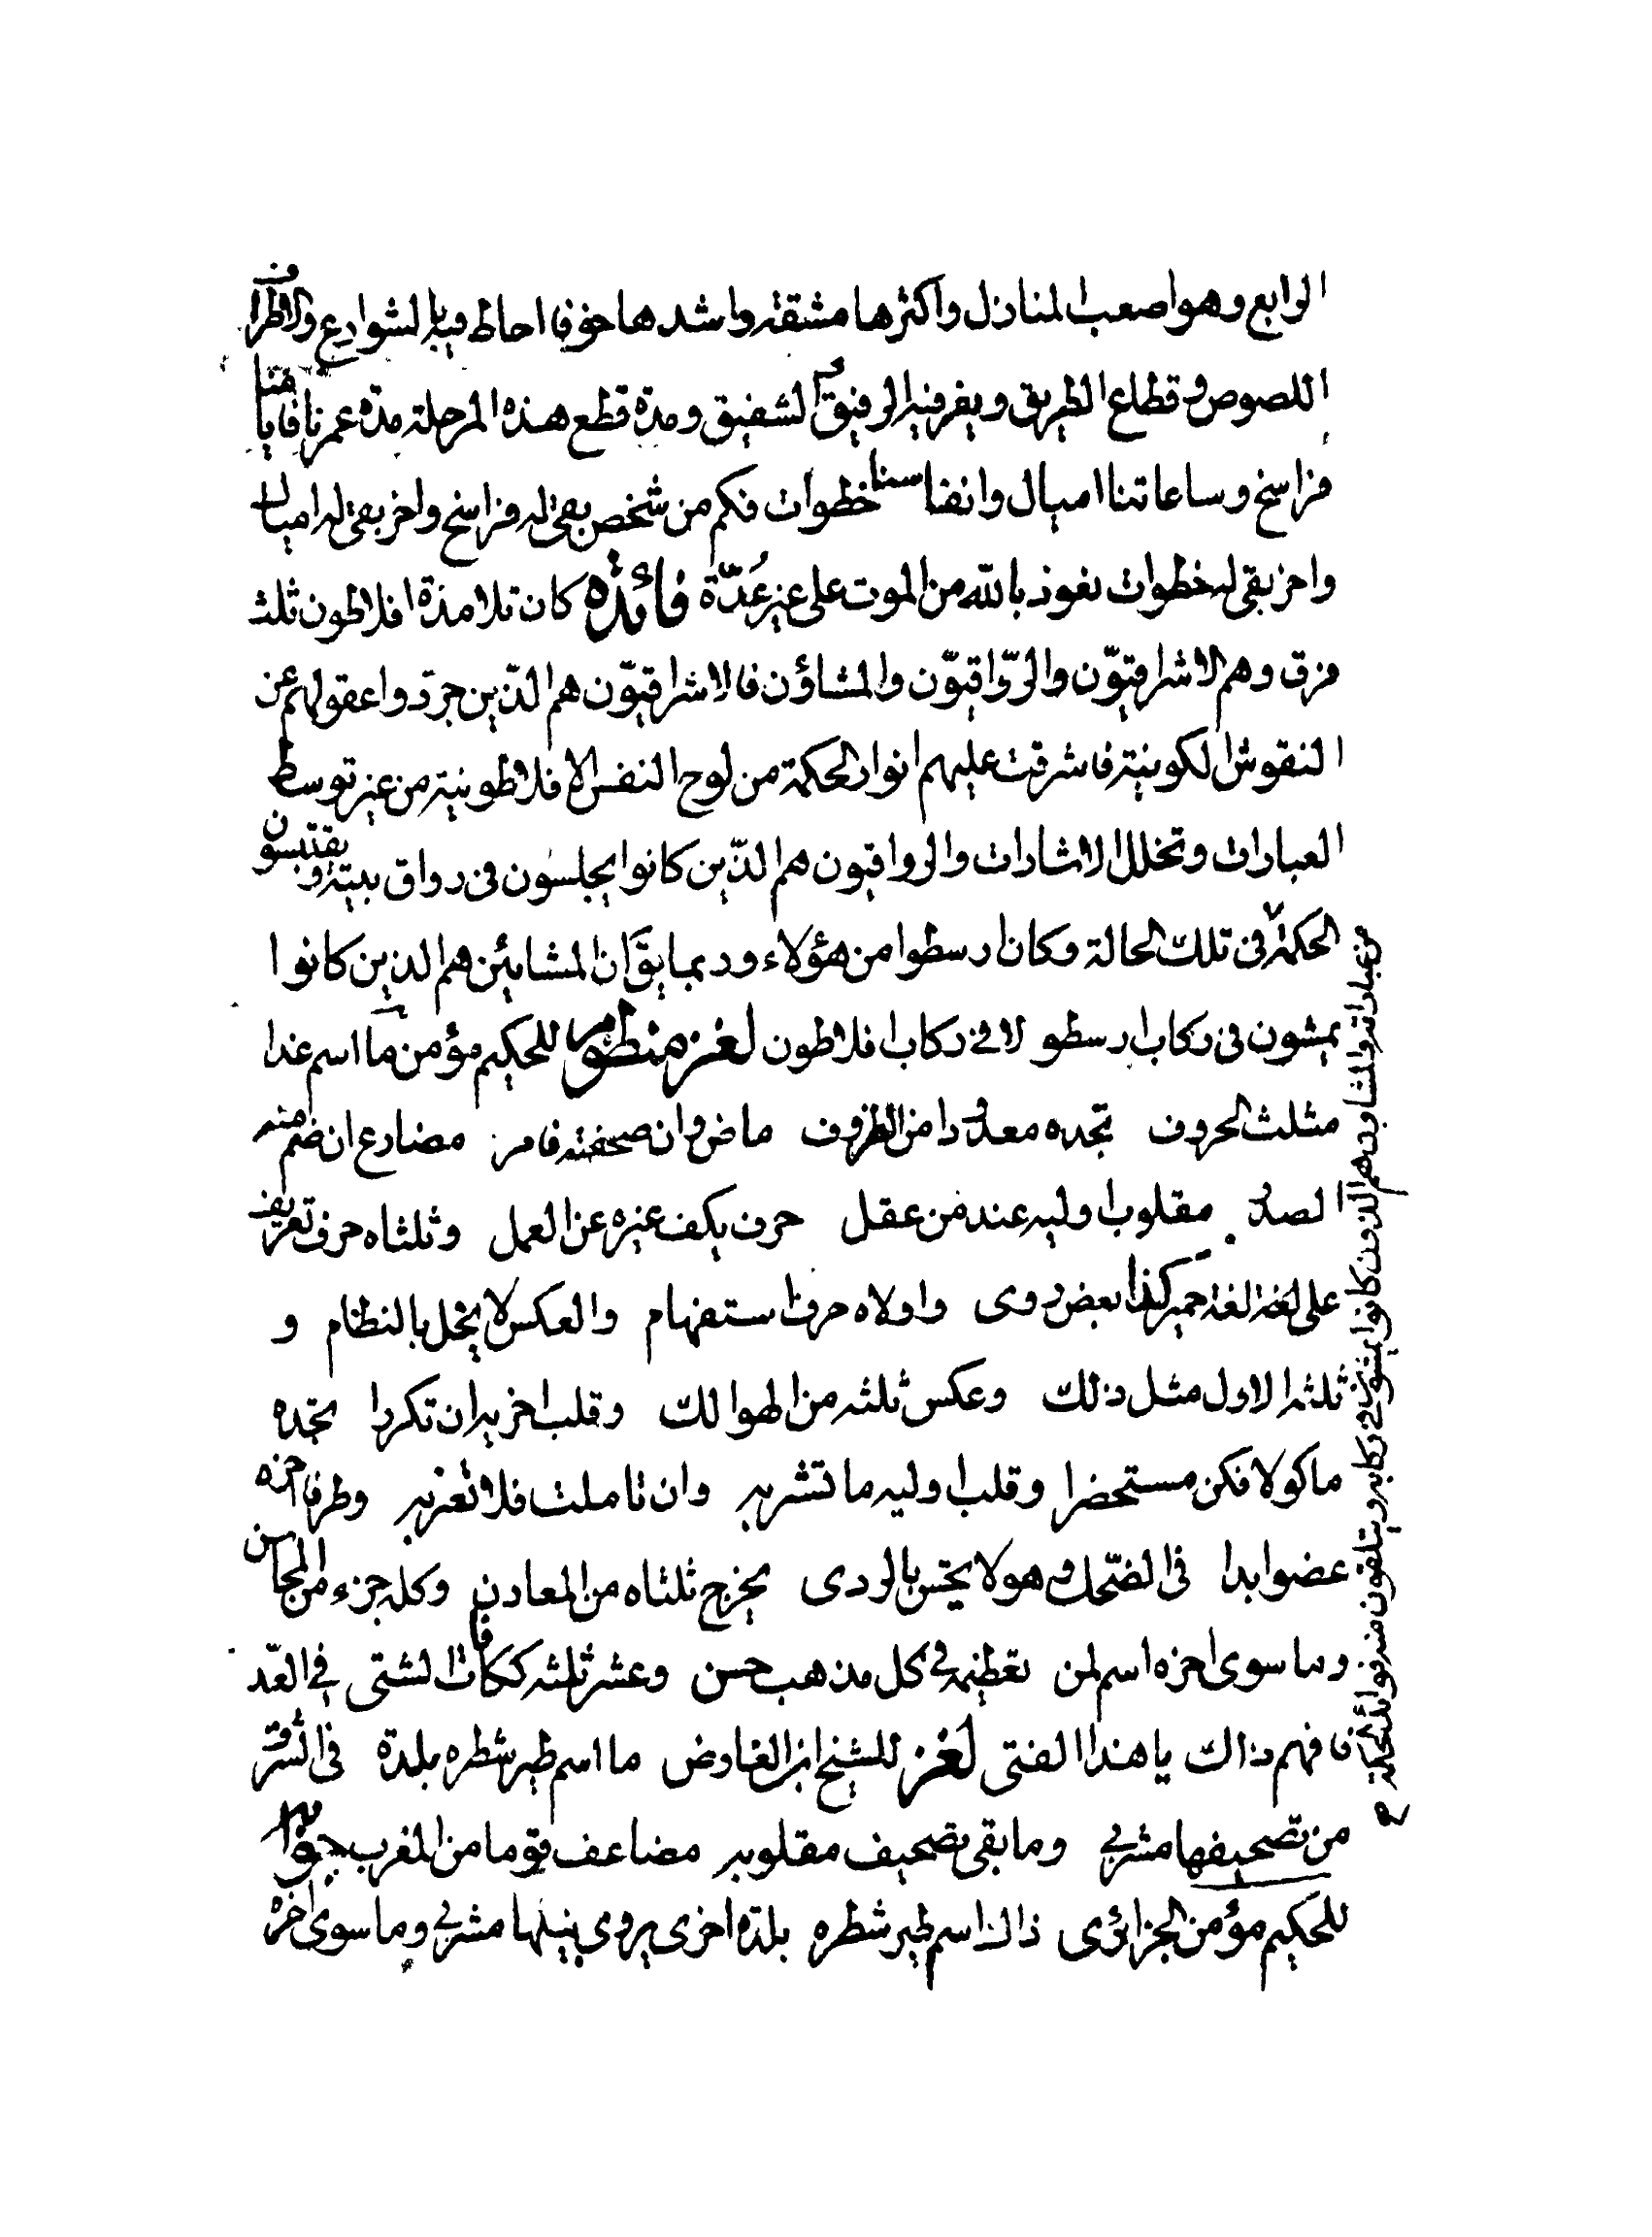 الرابع وهو اصعب المنازل واكثرها مشقة واشدها خوفا احاط فيه بالشوارع والاطراف
اللصوص وقطاع الطريق ويفر فيه الرفيق الشفيق ومدة قطع هذه المرحلة مدة عمرنا فايامنا
فراسخ وساعاتنا اميال وانفاسنا خطوات فكم من شخص بقى له فراسخ واخر بقى له اميال
واخر بقى له خطوات نعوذ بالله من الموت على غير عُدّة فائدة كان تلامذة افلاطون ثلث
فرق وهم الاشراقيّون والرّواقيّون والمشاؤن فالاشراقيّون هم الذّين جرّدوا عقولهم عن
النقوش الكونيّة فاشرقت عليهم انوار الحكمة من لوح النفس الافلاطونيّة من غير توسط
العبارات وتخلل الاشارات والرواقيون هم الذّين كانوا يجلسون فى رواق بيته ويقتبسون
الحكمة فى تلك الحالة وكان ارسطوا من هؤلاء وربما يقَ ان المشايئن هم الذين كانوا
يمشون فى ركاب ارسطو لا فى ركاب افلاطون لغز منظوم للحكيم مؤمن ما اسم غدا
مثلث الحروف تجده معدودا من الظروف ماض وان صحفته فامر مضارع ان ضم منه
الصدر مقلوب اوليه عند من عقل حرف يكف غيره عن العمل وثلثاه حرف تعريف
على لغة لغة حمير كذا بعض روى واولاه حرفا استفهام والعكس لا يخل بالنظام و
ثلثه الاول مثل ذلك وعكس ثلثه من الهوالك وقلب اخريه ان تكررا تجده
ماكولا فكن مستحضرا وقلب اوليه ما تشربه وان تاملت فلا تغربه وطرفا اخره
عضوا بدا فى الضّحك وهو لا يخس بالردى يخرج ثلثاه من المعادن وكله جزء من المحاسن
وما سوى اخره اسم لمن تعظيمه فى كل مذهب حسن وعشر ثلثه ككافات الشتى فى العدّ
فافهم ذاك يا هذا الفتى لغز للشيخ ابن الفارض ما اسم طير شطره بلدة فى الشرق
من تصحيفها مشربى وما بقى تصحيف مقلوبه مضاعف قوما من المغرب جوابه
للحكيم مؤمن الجزائرى ذاك اسم طير شطره بلدة اخرى يروى نيلها مشربى وما سوى اخره
من عباراته والمشاؤون هم الذون كانوا يمشون فى ركابه ويتلقون منه فوائد الحكمة